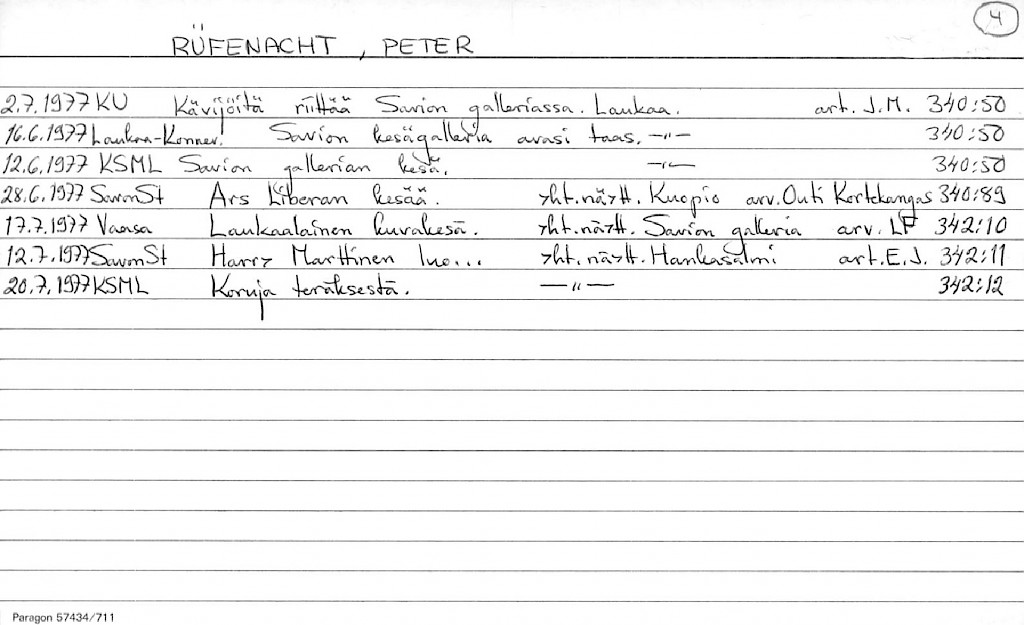 4
RÜFENACHT, PETER
2.7.1977 KU Kävijöitä riittää Savion galleriassa. Laukaa. art. J.M. 340:50
16.6.1977 Laukaa-Konnev. Savion kesägalleria avasi taas. —"— 340:50
12.6.1977 KSML Savion gallerian kesä. —"— 340:50
28.6.1977 SavonSt Ars Liberan kesää. yht.näytt. Kuopio arv. Outi Kortekangas 340:89
17.7.1977 Vaasa Laukaalainen kuvakesä. yht.näytt. Savion galleria arv. LP 342:10
12.7.1977 SavonSt Harry Marttinen luo... yht.näytt. Hankasalmi art. E.J. 342:11
20.7.1977 KSML Koruja teräksestä. —"— 342:12
Paragon 57434/711